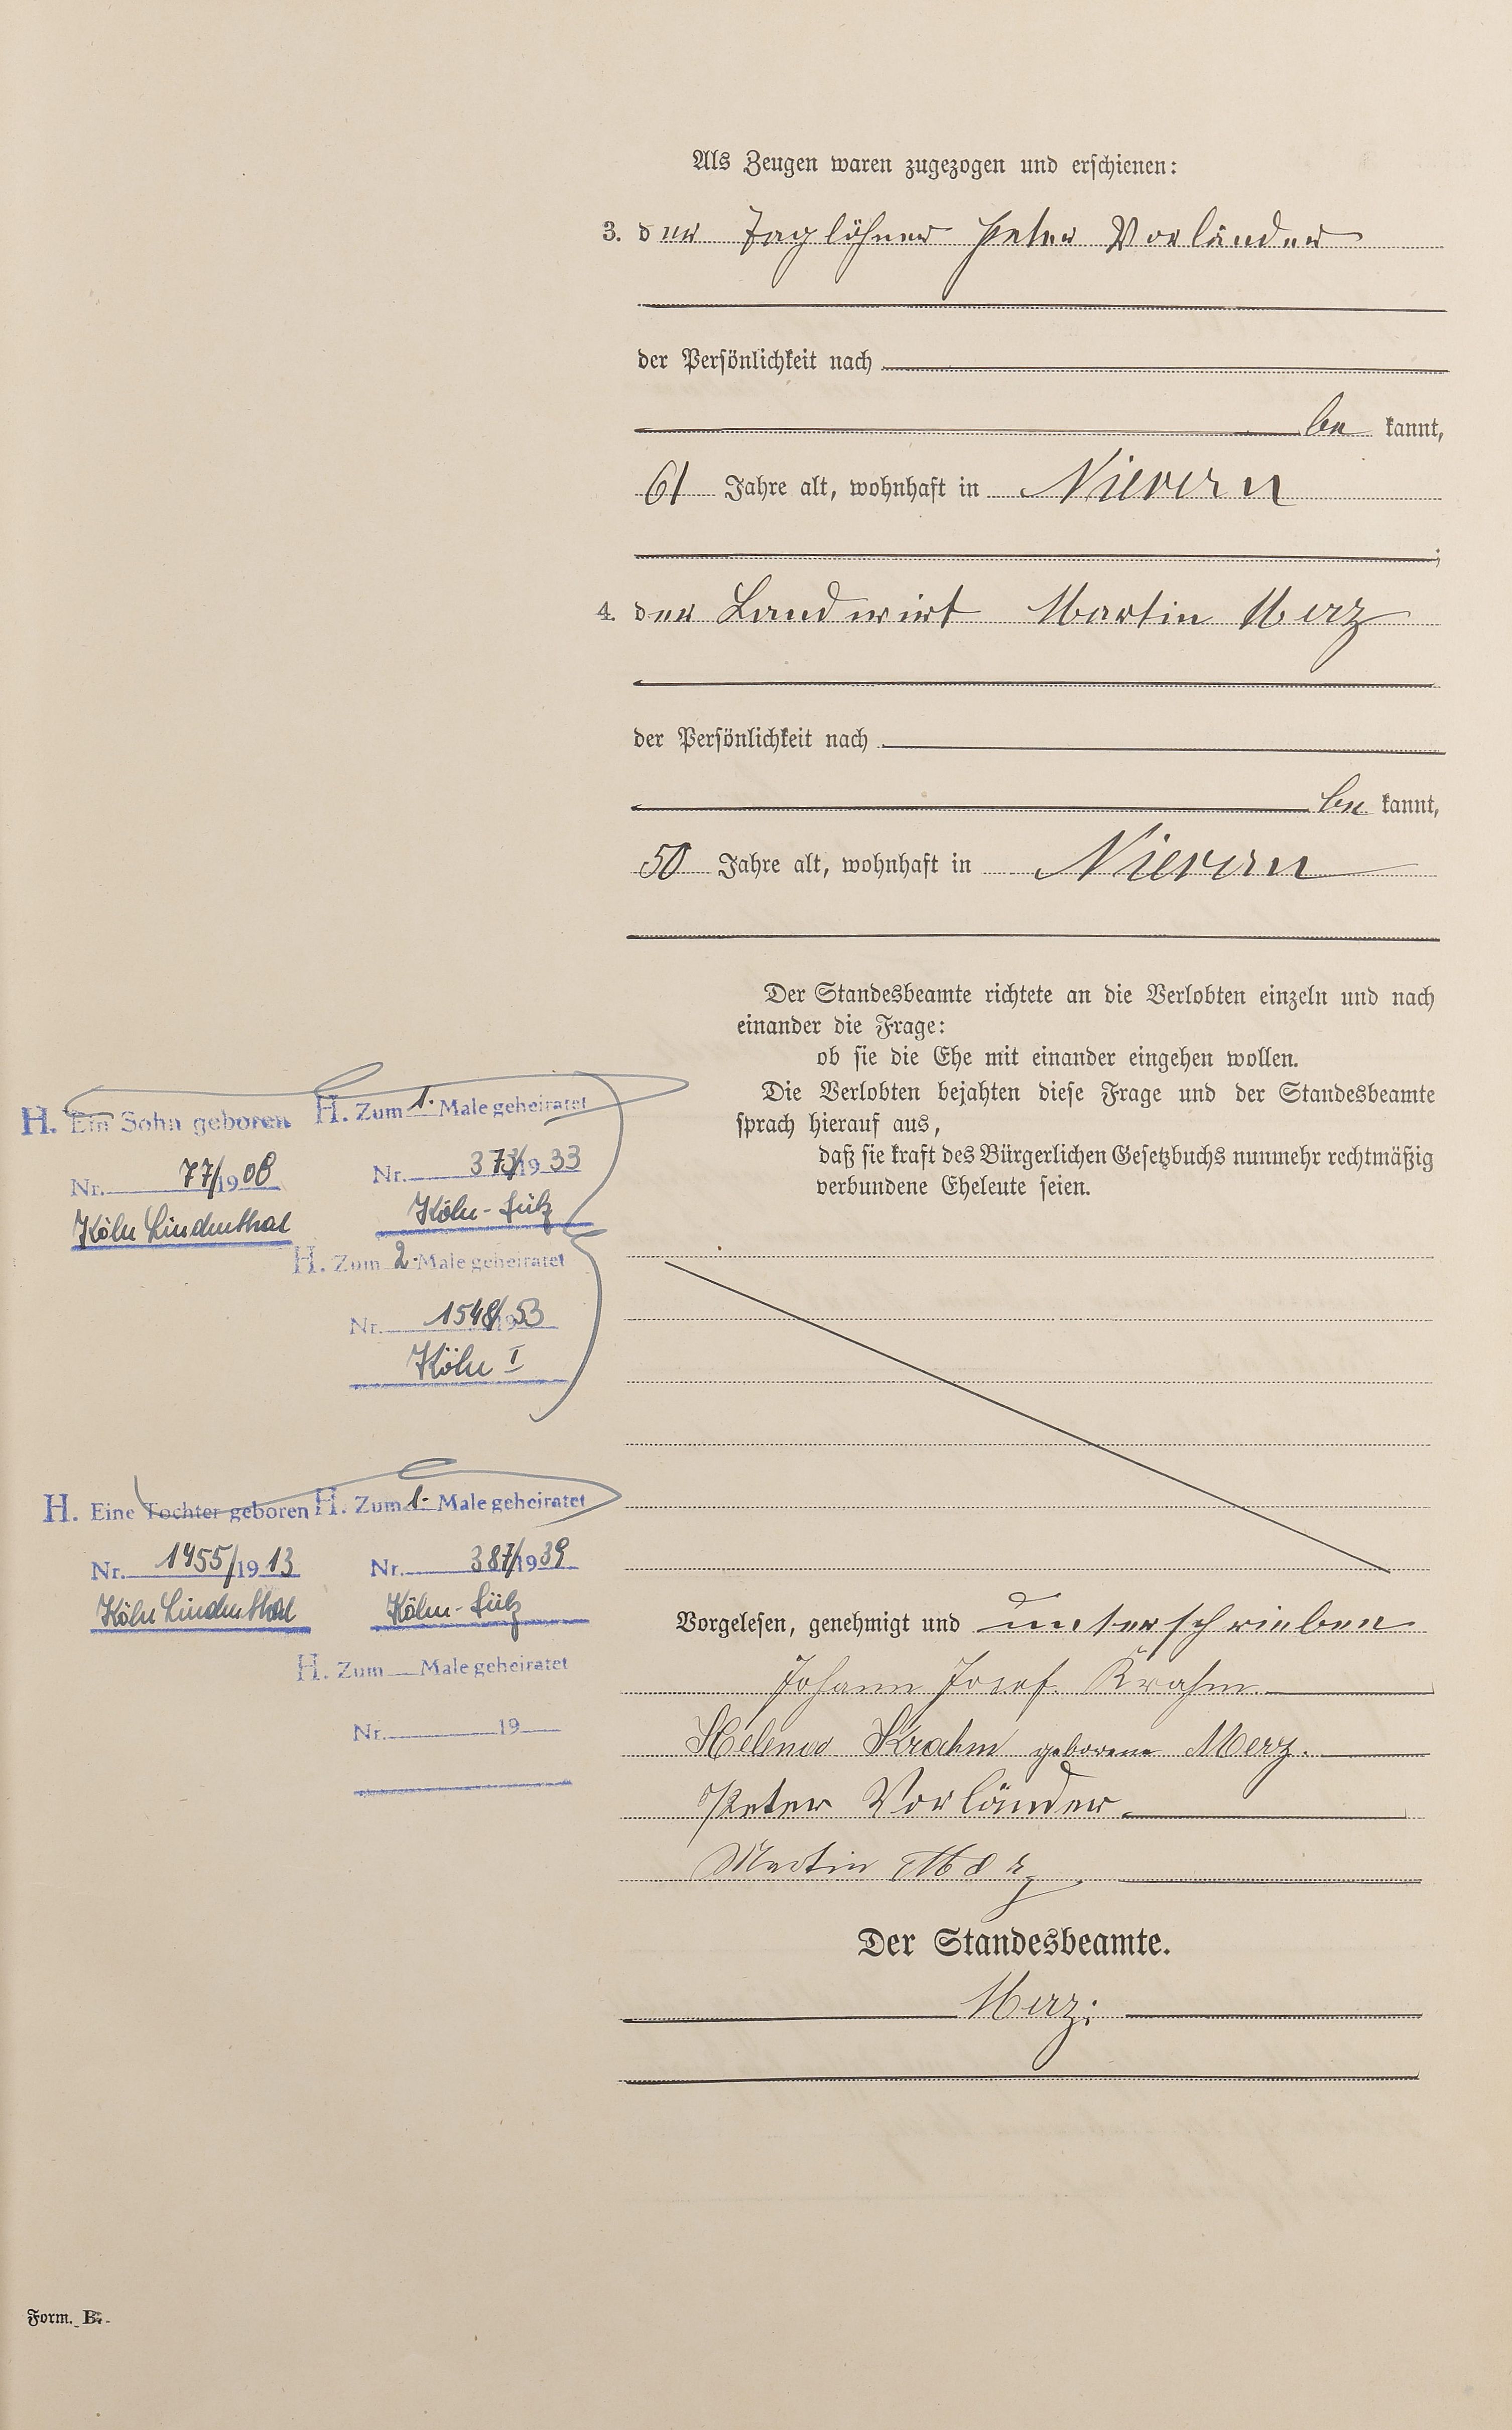 Als Zeugen waren zugezogen und erschienen:
3. der Taglöhner Peter Vorländer
der Persönlichkeit nach
be kannt,
61 Jahre alt, wohnhaft in Nievern
;
4. der Landwirt Martin Merz
der Persönlichkeit nach
be kannt,
50 Jahre alt, wohnhaft in Nievern
Der Standesbeamte richtete an die Verlobten einzeln und nach
einander die Frage:
ob sie die Ehe mit einander eingehen wollen.
Die Verlobten bejahten diese Frage und der Standesbeamte
sprach hierauf aus,
daß sie kraft des Bürgerlichen Gesetzbuchs nunmehr rechtmäßig
verbundene Eheleute seien.
H. Ein Sohn geboren
Nr. 77/1908
Köln Lindenthal
H. Zum 1. Male geheiratet
Nr. 373/1933
Köln-Sülz
H. Zum 2. Male geheiratet
Nr. 1548/1953
Köln I
H. Eine Tochter geboren
Nr. 1455/1913
Köln Lindenthal
H. Zum 1. Male geheiratet
Nr. 387/1939
Köln-Sülz
H. Zum Male geheiratet
Nr. 19
Vorgelesen, genehmigt und unterschrieben
Johann Josef Krahm
Helena Krahm geborene Merz.
Peter Vorländer
Martin Merz
Der Standesbeamte.
Merz.
Form. B.